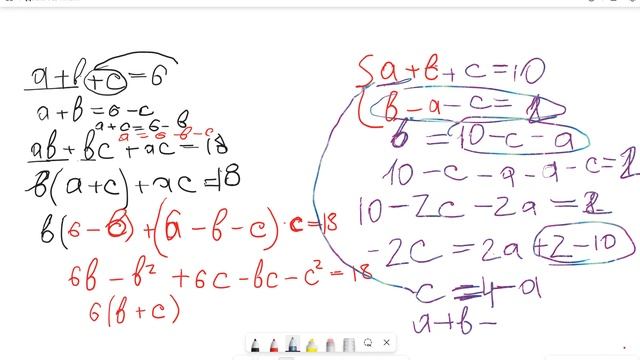 a+b+c=6
a+b=6-c
a+c=6-b
a=6-b-c
ab+bc+ac=18
b(a+c)+ac=18
b(6-b)+(6-b-c)·c=18
6b-b²+6c-bc-c²=18
6(b+c)
a+b+c=10
b-a-c=2
b=10-c-a
10-c-a-a-c=2
10-2c-2a=2
-2c=2a+2-10
c=4-a
a+b-